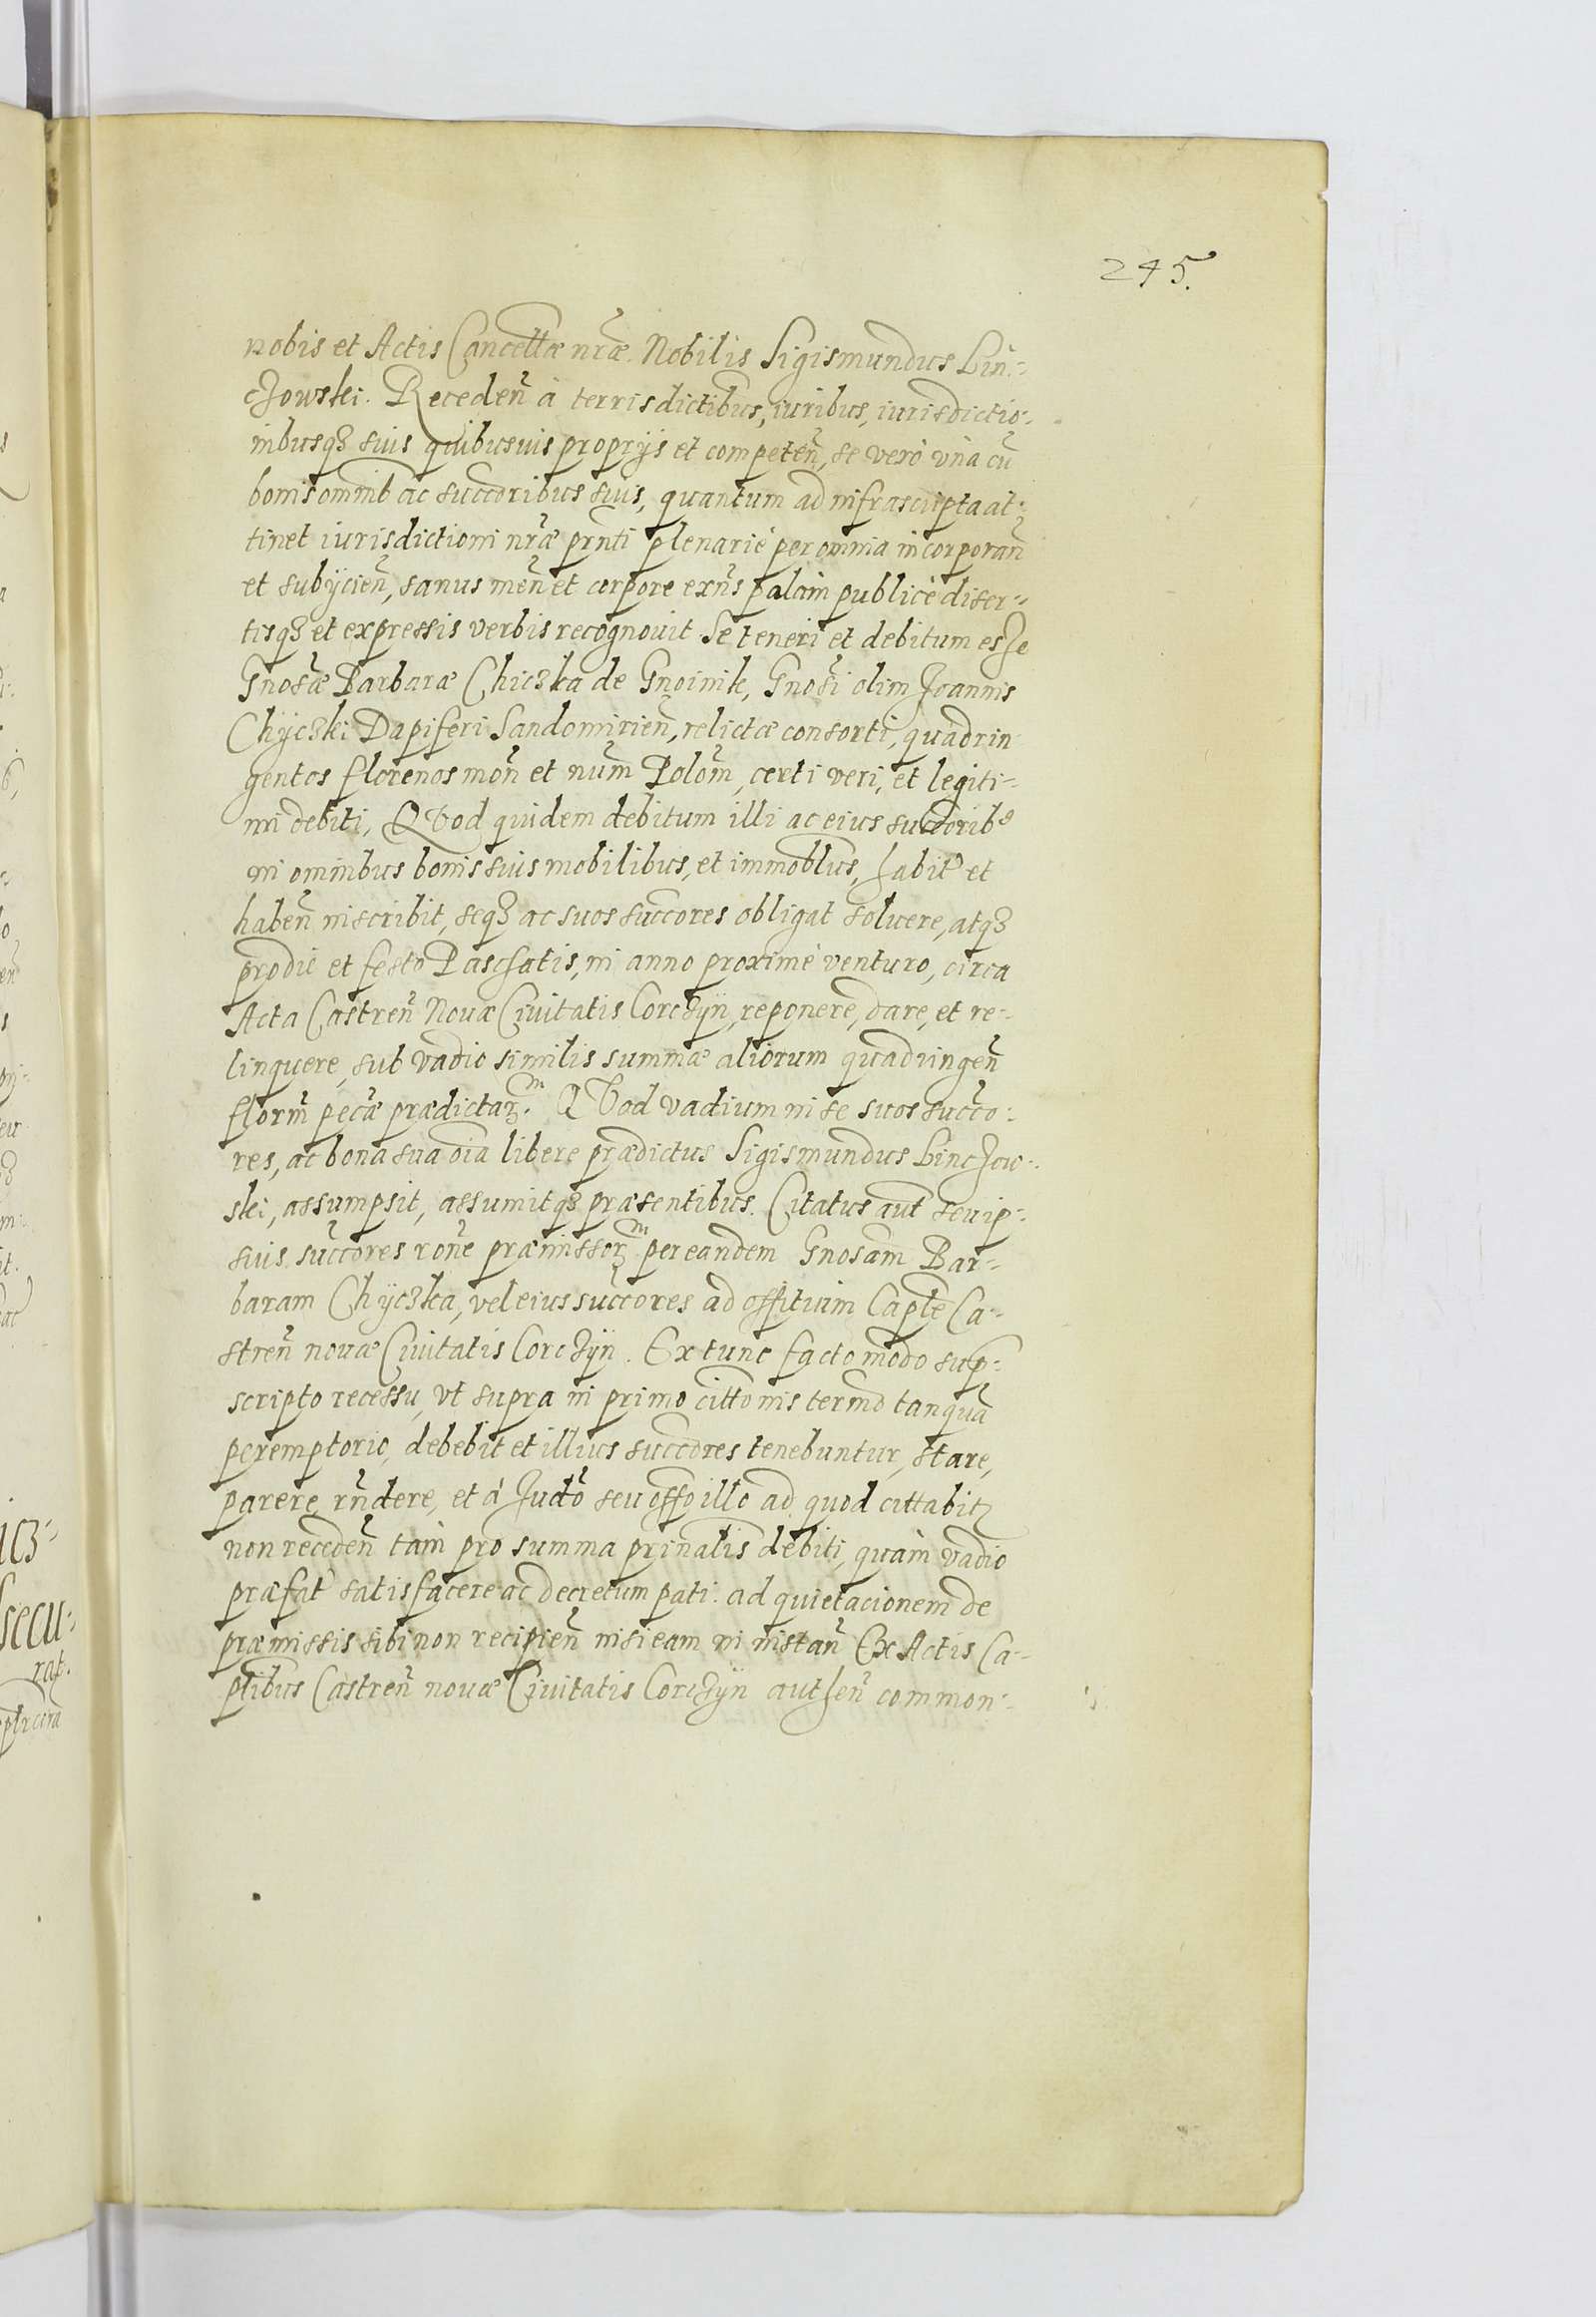 245.
nobis et Actis Cancellæ nr̃æ. Nobilis Sigismundus Lin-
chowski. Receden̄ à terris dictibus, iuribus, iurisdictio-
nibusqȝ suis quibusuis proprijs et competen̄, se verò vnà cũ
bonis omnib ac succoribus suis, quantum ad infrascripta at-
tinet iurisdictioni nr̃æ prn̄ti plenariè per omnia incorporan̄
et subijcien̄, sanus men̄ et corpore exn̄s palàm publicè diser-
tisqȝ et expressis verbis recognouit Se teneri et debitum esse
Gnosæ Barbaræ Chicȝka de Gnoinik, Gnosi olim Joannis
Chÿcȝki Dapiferi Sandomirien̄, relictæ consorti, quadrin
gentos florenos mon̄ et num̄ Polom̄, certi veri, et legiti-
mi debiti, QVod quidem debitum illi ac eius succorib9
in omnibus bonis suis mobilibus, et immoblus, habit̄ et
haben̄ inscribit, seqȝ ac suos succores obligat soluere, atqȝ
pro die et festo Paschatis, in anno proximè venturo, circa
Acta Castren̄ Nouæ Ciuitatis Corchÿn, reponere, dare, et re-
linquere, sub vadio similis summæ aliorum quadringen̄
florm̄ pecæ prædictaȝ.m QVod vadium in se suos succo-
res, ac bona sua oīa libere prædictus Sigismundus Linchow-
ski, assumpsit, assumitqȝ præsentibus. Citatus aut̄ seu ip-
suis succores ron̄e præmissoȝm per eandem Gnosam Bar-
baram Chÿcȝka, vel eius succores ad offitium Capl̄e Ca-
stren̄ nouæ Ciuitatis Corchÿn. Ex tunc facto modo sup-
scripto recessu, vt supra in primo citt̄onis termō tanquā
peremptorio, debebit et illius succores tenebuntur, stare,
parere, rn̄dere, et à Judō seu offo illo ad quod cittabitȝ
non receden̄ tàm pro summa prin̄alis debiti, quàm vadio
præfat̄ satisfacere ac decretum pati. ad quietacionem de
præmissis sibi non recipien̄ nisi eam in instan̄ Ex Actis Ca-
pl̄ibus Castren̄ nouæ Ciuitatis Corchÿn authen̄ common-